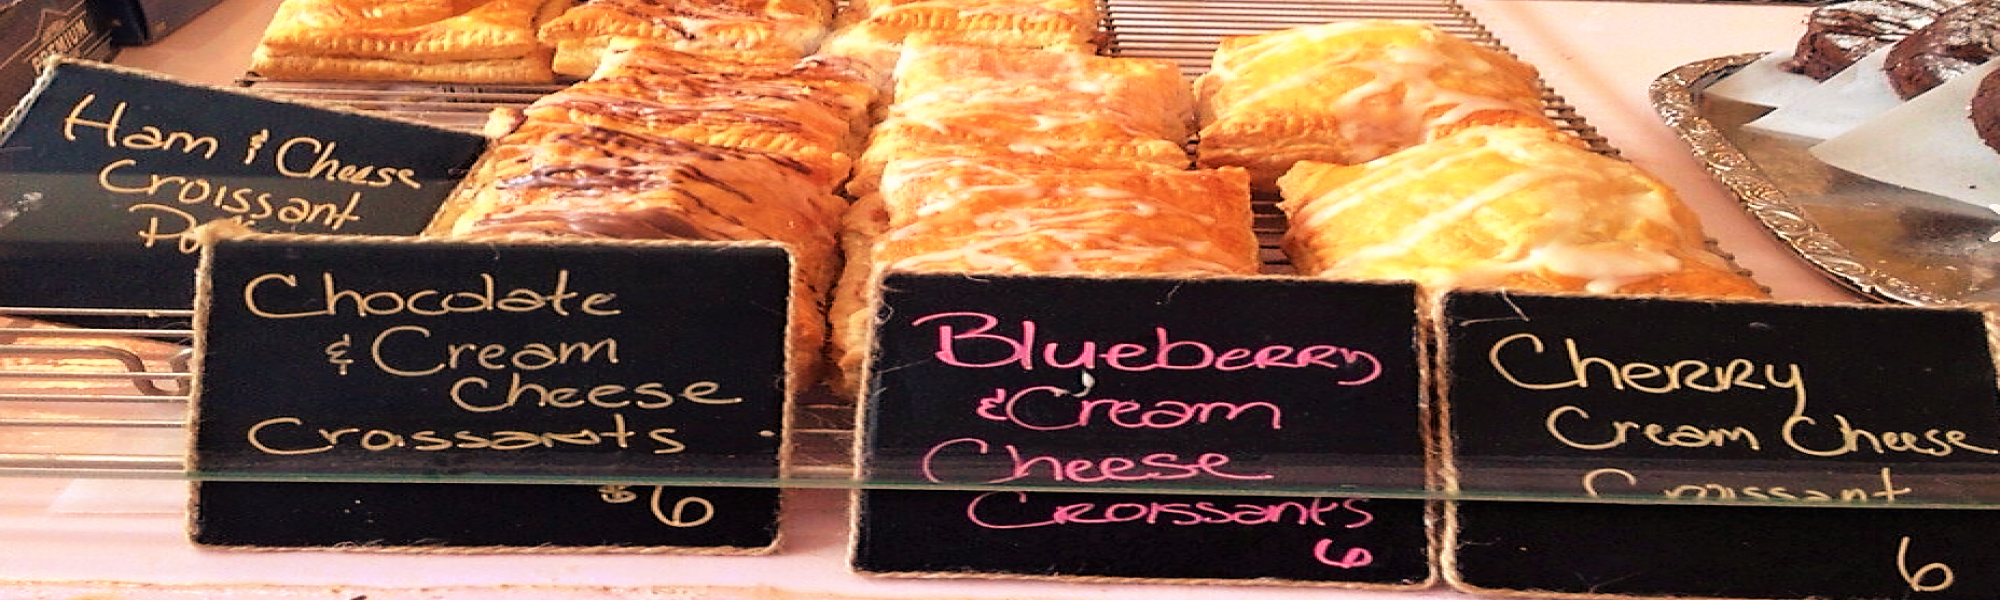 Ham & Cheese
Croissant
Chocolate
& Cream
Cheese
Croissants
$6
Blueberry
& Cream
Cheese
Croissants
6
Cherry
Cream Cheese
Croissant
6